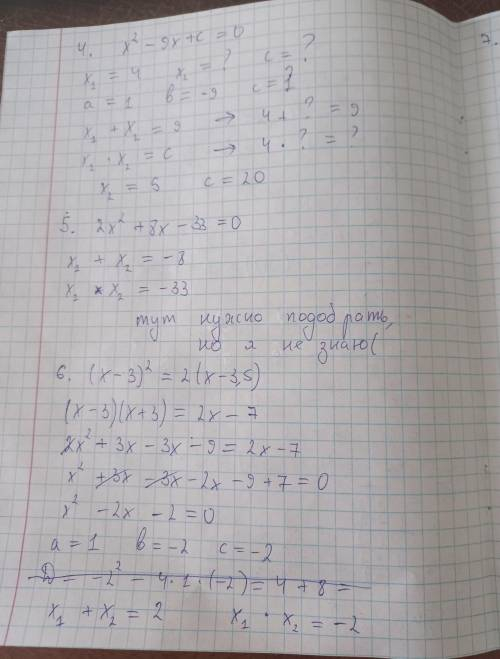 4. x² - 9x + c = 0
x₁ = 4 x₂ = ? c = ?
a = 1 b = -9 c = ?
x₁ + x₂ = 9 → 4 + ? = 9
x₂ · x₂ = c → 4 · ? = ?
x₂ = 5 c = 20
5. 2x² + 8x - 33 = 0
x₂ + x₂ = -8
x₂ * x₂ = -33
тут нужно подобрать,
но я не знаю(
6. (x-3)² = 2(x-3,5)
(x-3)(x+3) = 2x - 7
x² + 3x - 3x - 9 = 2x - 7
x² + 3x - 3x - 2x - 9 + 7 = 0
x² - 2x - 2 = 0
a = 1 b = -2 c = -2
D = -2² - 4·1·(-2) = 4 + 8 =
x₁ + x₂ = 2 x₁ · x₂ = -2
7.